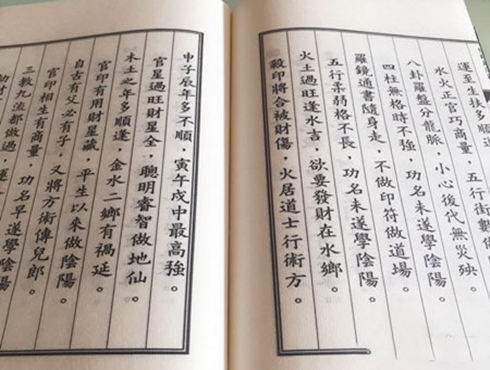 運至生扶多順
水火正官巧商量，五行術數
八卦羅盤分龍脈，小心後代無災殃。
四柱無格時不強，功名未遂學陰陽。
羅鏡通書隨身走，不做印符做道場。
五行柔弱格不長，功名未遂學陰陽。
火土過旺逢水吉，欲要發財在水鄉。
殺印將合被財傷，火居道士行術方。
申子辰年多不順，寅午戌中最高強。
官星過旺財星全，聰明睿智做地仙。
木土之年多順逢，金水二鄉有禍延。
官印有用財星藏，平生以來做陰陽。
自古有父必有子，又將方術傳兒郎。
官印相生有商量，功名早遂學陰陽
三教九流都做過，運